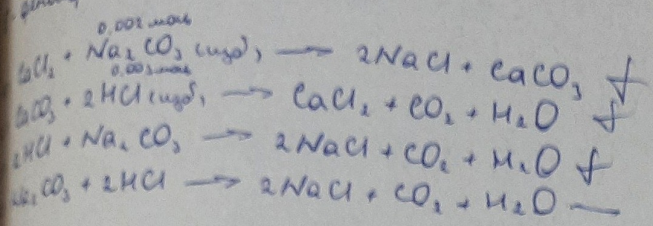 0,002 моль
CaCl₂ + Na₂CO₃ (изб) → 2NaCl + CaCO₃ +
0,003 моль
CaCO₃ + 2HCl (изб) → CaCl₂ + CO₂ + H₂O +
2HCl + Na₂CO₃ → 2NaCl + CO₂ + H₂O +
Na₂CO₃ + 2HCl → 2NaCl + CO₂ + H₂O —